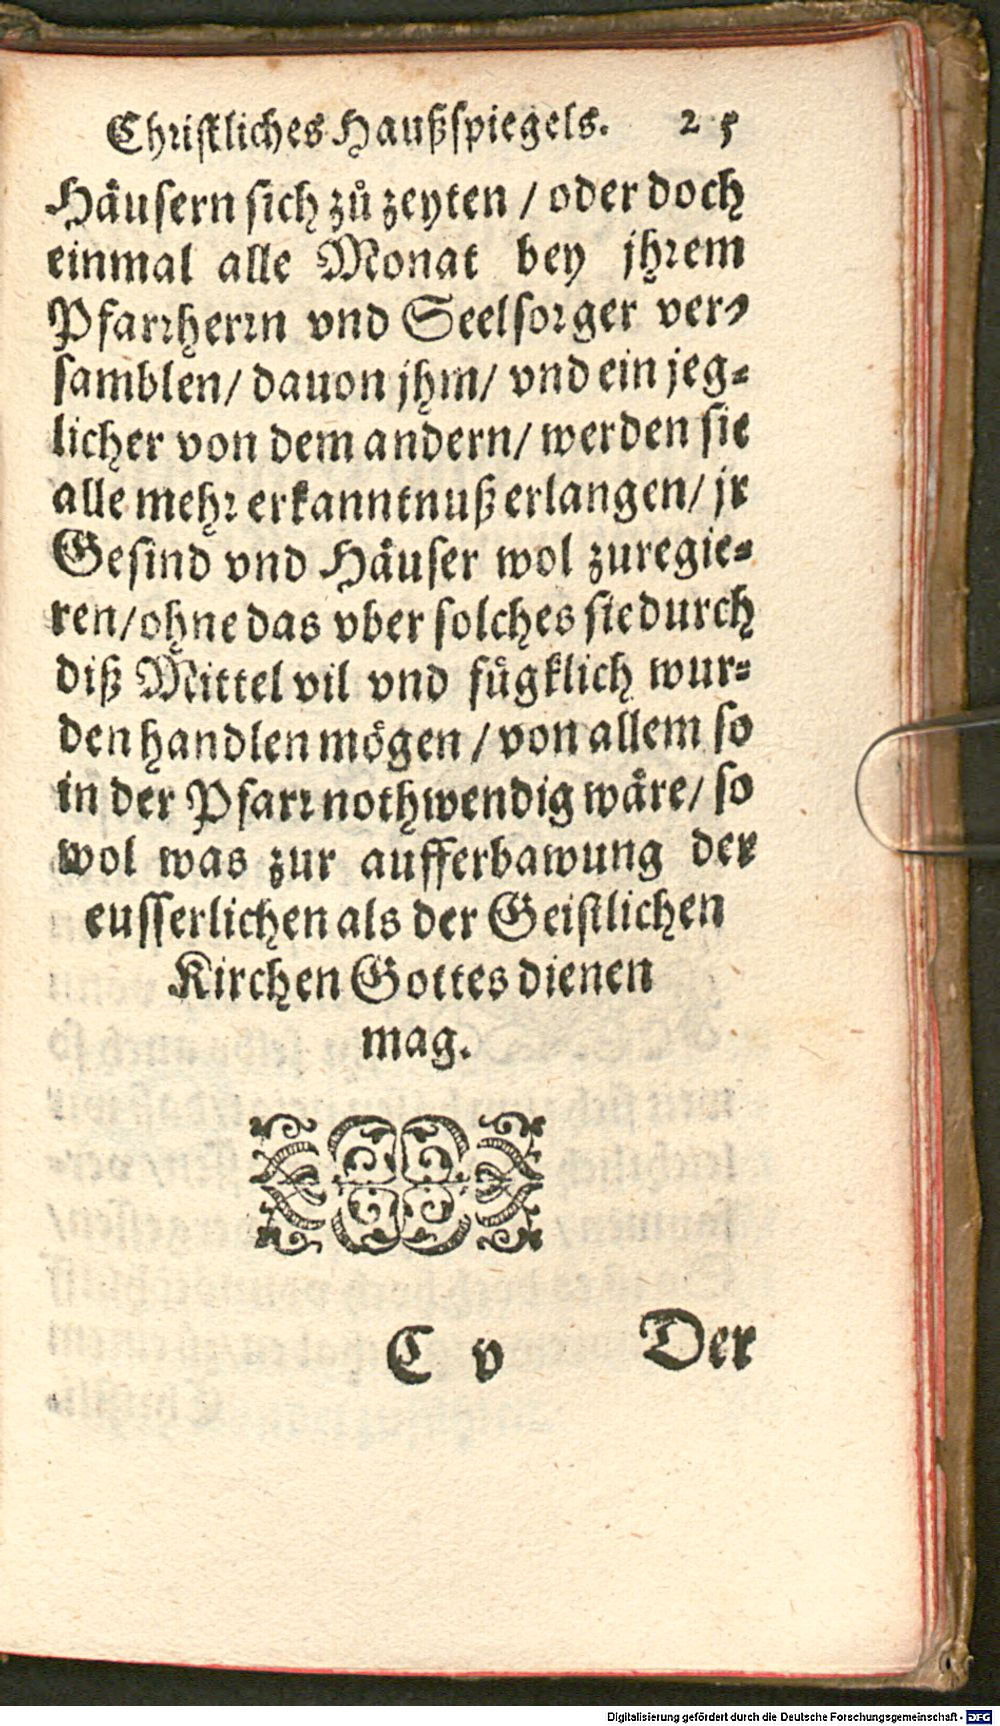 Christliches Haußspiegels. 25
Häusern sich zů zeyten / oder doch
einmal alle Monat bey jhrem
Pfarrherrn vnd Seelsorger ver⸗
samblen / dauon jhm / vnd ein jeg⸗
licher von dem andern / werden sie
alle mehr erkanntnuß erlangen / jr
Gesind vnd Häuser wol zuregie⸗
ren / ohne das vber solches sie durch
diß Mittel vil vnd fügklich wur⸗
den handlen mögen / von allem so
in der Pfarr nothwendig wäre / so
wol was zur aufferbawung der
eusserlichen als der Geistlichen
Kirchen Gottes dienen
mag.
C v Der
Digitalisierung gefördert durch die Deutsche Forschungsgemeinschaft - DFG